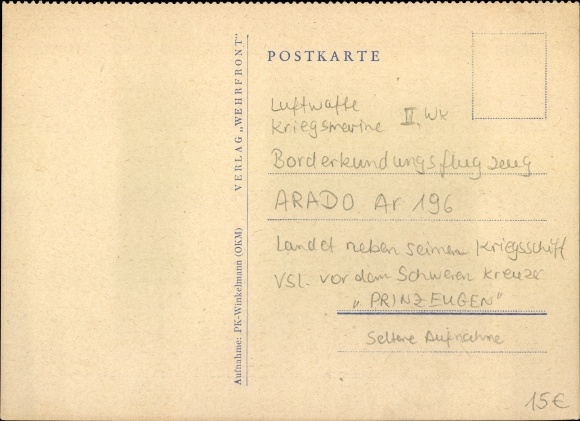 POSTKARTE
Luftwaffe
Kriegsmarine II. WK
Borderkundungsflugzeug
ARADO Ar 196
Landet neben seinem Kriegsschiff
vsl. vor dem Schweren Kreuzer
„PRINZ EUGEN"
Seltene Aufnahme
15€
VERLAG „WEHRFRONT"
Aufnahme: PK-Winkelmann (OKM)